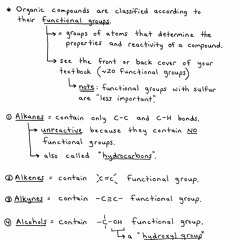 * Organic compounds are classified according to
their functional groups.
↳ = groups of atoms that determine the
properties and reactivity of a compound.
→ see the front or back cover of your
textbook (~20 functional groups)
↳ note: functional groups with sulfur
are "less important."
① Alkanes = contain only C-C and C-H bonds.
→ unreactive because they contain NO
functional groups.
→ also called "hydrocarbons".
② Alkenes = contain >C=C< functional group.
③ Alkynes = contain -C≡C- functional group.
④ Alcohols = contain -C-OH functional group.
↳ a "hydroxyl group"